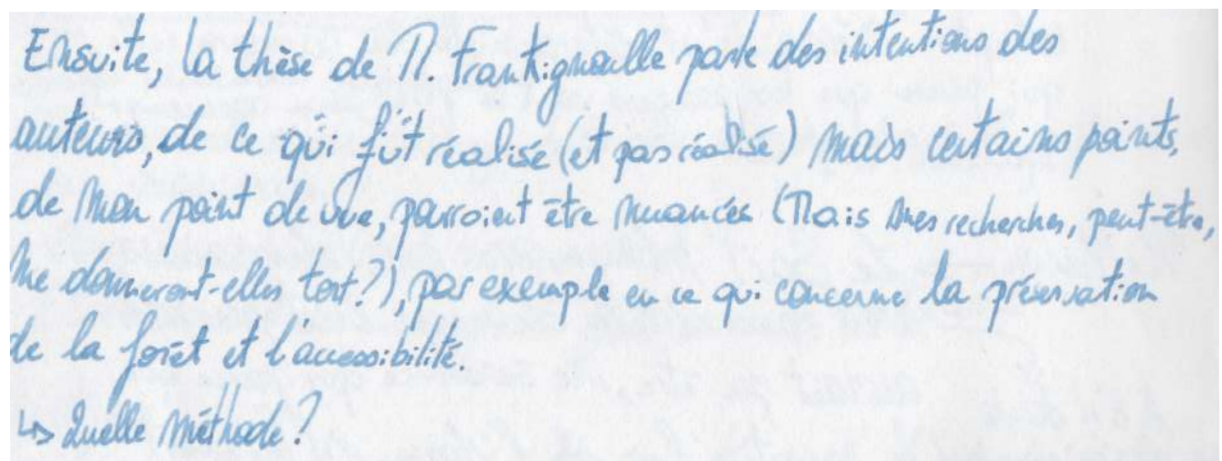 Ensuite, la thèse de M. Frankignoulle parle des intentions des
auteurs, de ce qui fût réalisé (et pas réalisé) mais certains points,
de mon point de vue, pourroient être nuancés (Mais mes recherches, peut-être,
me donneront-elles tort?), par exemple en ce qui concerne la préservation
de la forêt et l'accessibilité.
↳ Quelle méthode?